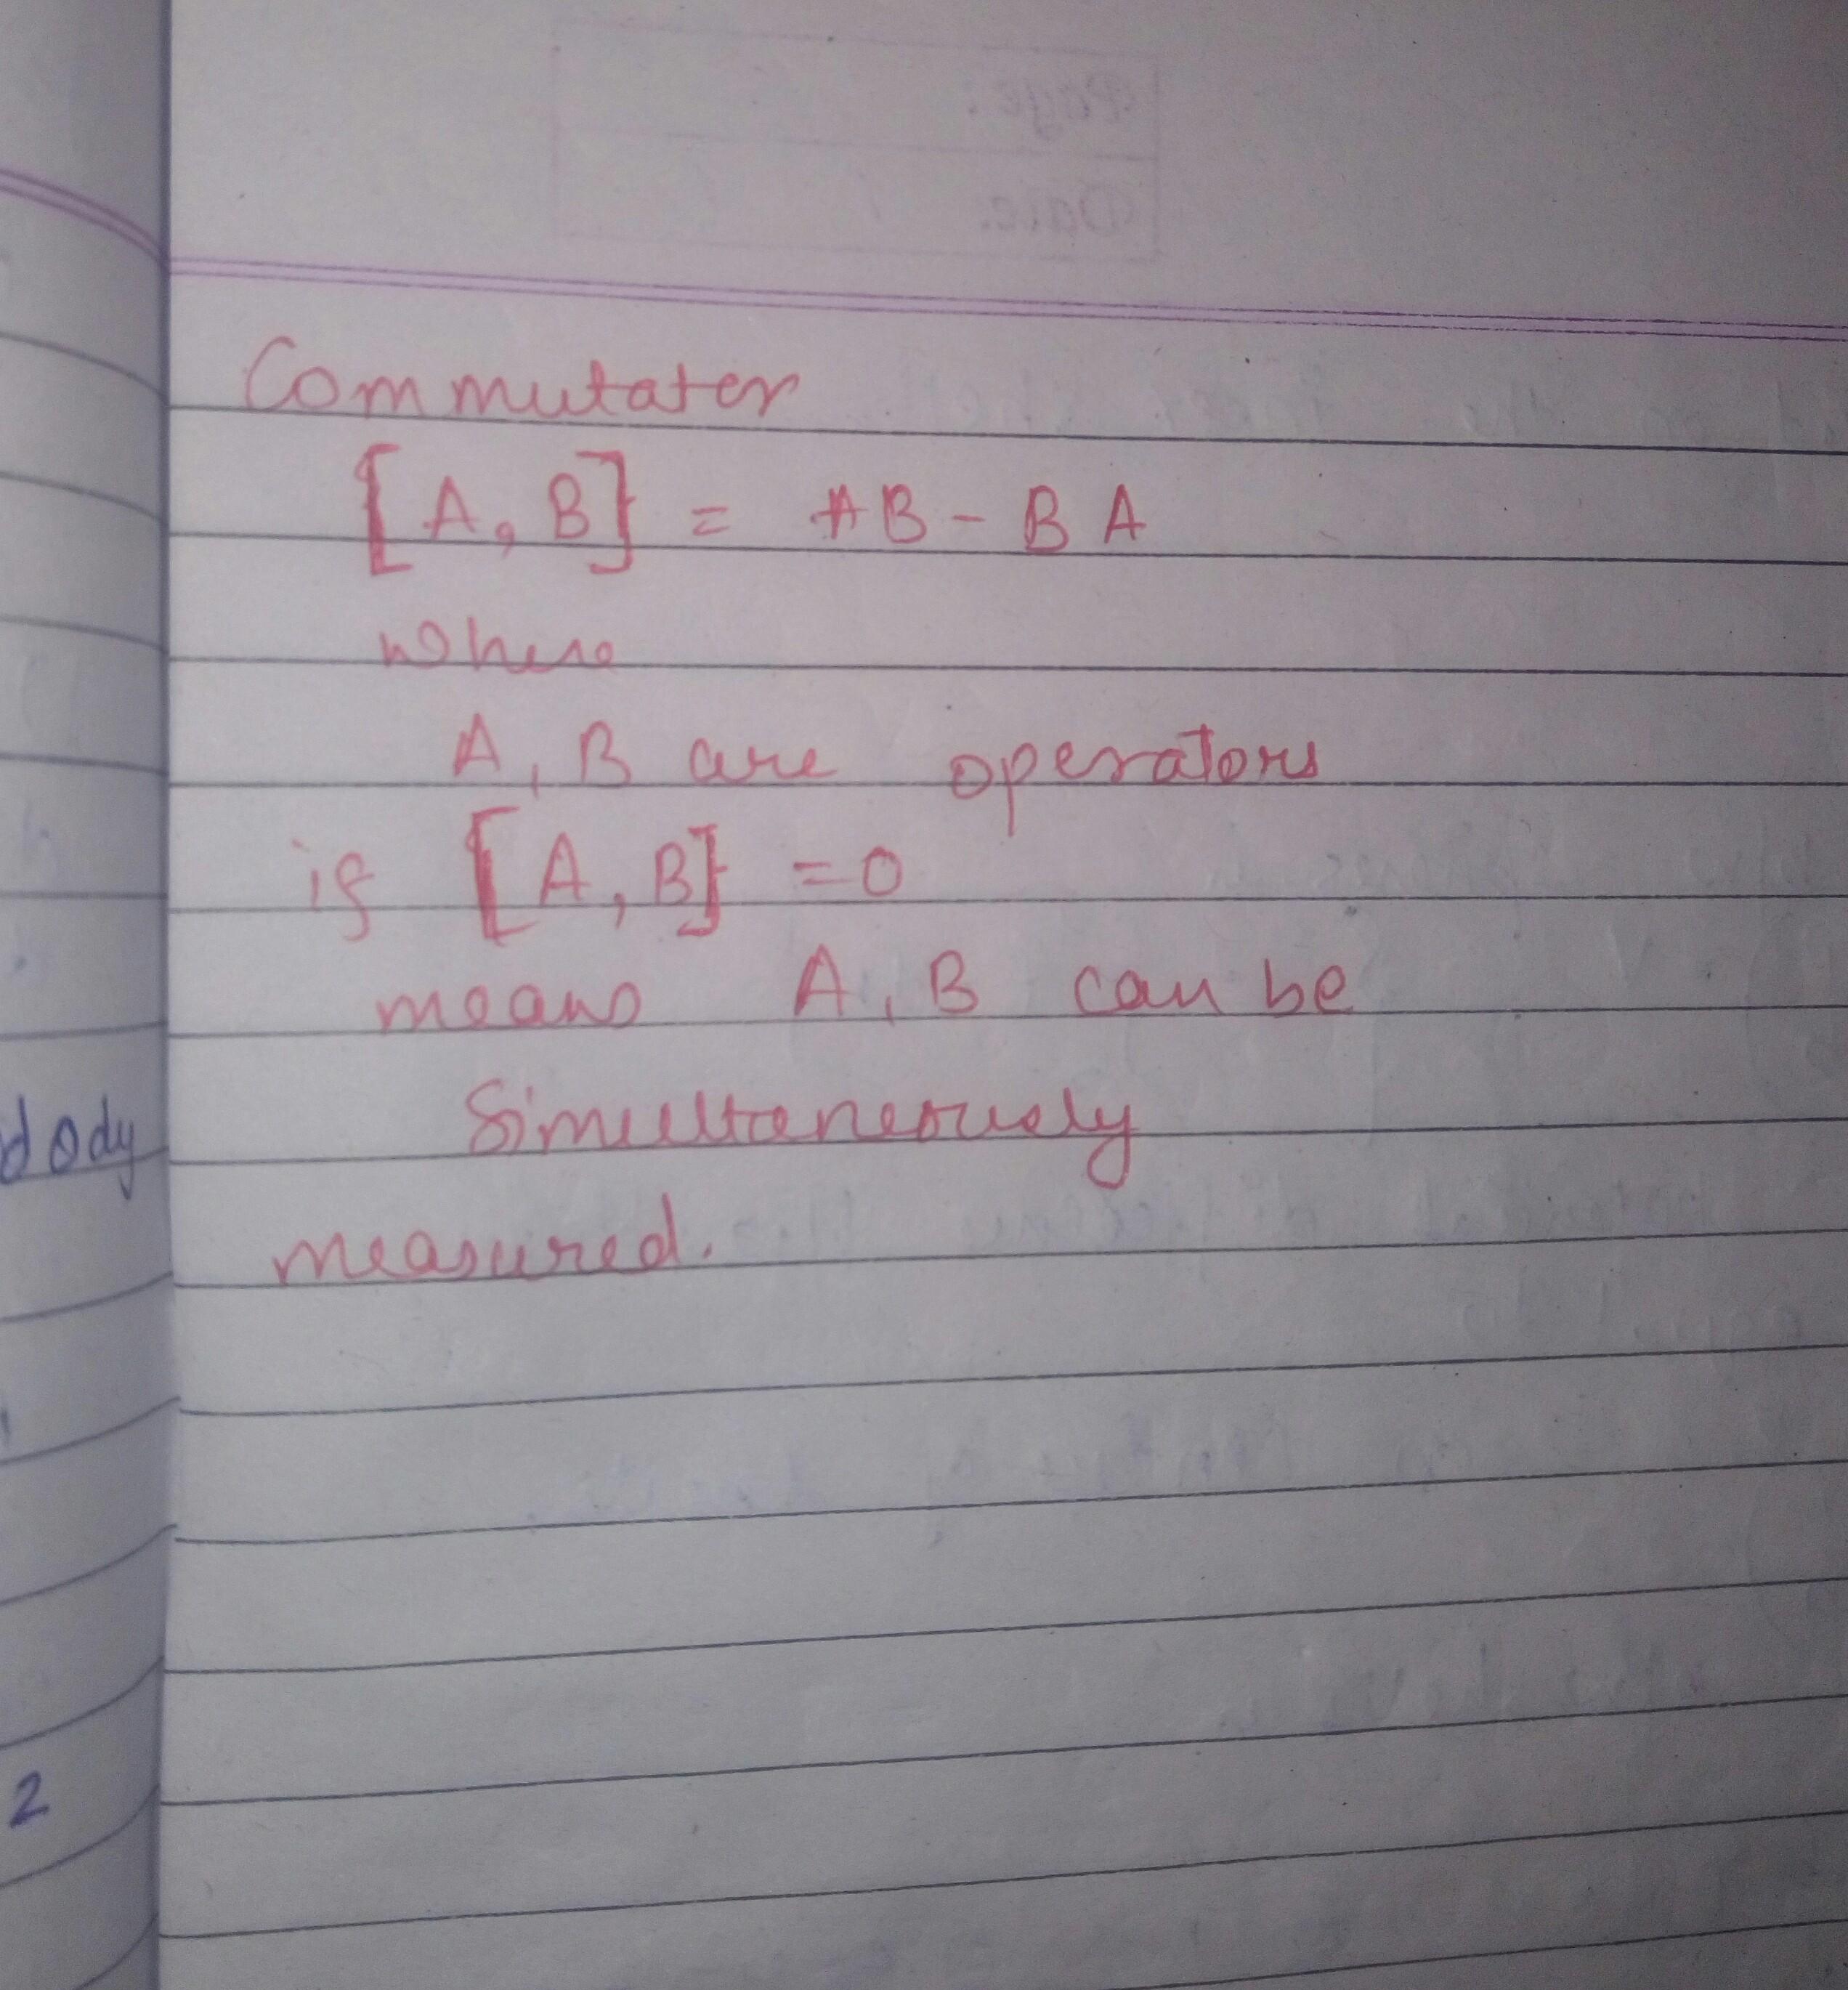 Page:
Date:
Commutater
[A, B] = AB - BA
where
A, B are operators
if [A, B] = 0
means A, B can be
Simultaneously
measured.
dody
2